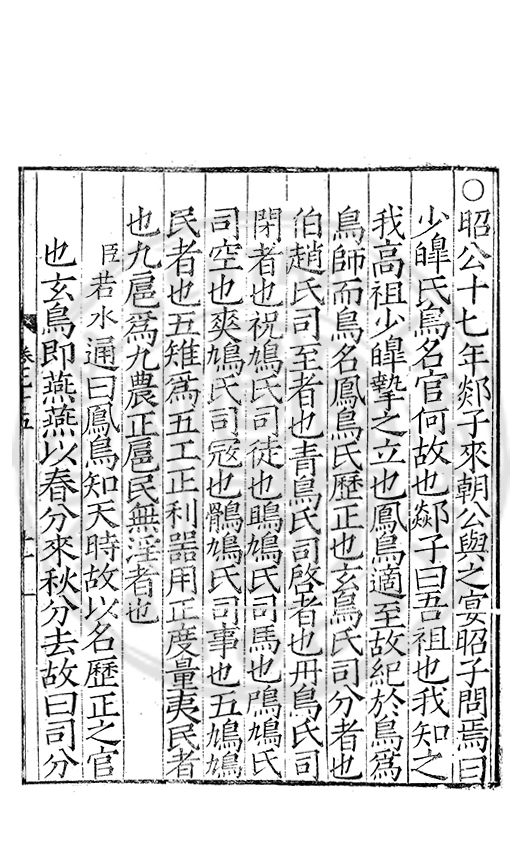 ○昭公十七年郯子來朝公與之宴昭子問焉曰
少皥氏鳥名官何故也郯子曰吾祖也我知之
我高祖少皥摯之立也鳳鳥適至故紀於鳥爲
鳥師而鳥名鳳鳥氏歷正也玄鳥氏司分者也
伯趙氏司至者也青鳥氏司啓者也丹鳥氏司
閉者也祝鳩氏司徒也鴡鳩氏司馬也鳲鳩氏
司空也爽鳩氏司宼也鶻鳩氏司事也五鳩鳩
民者也五雉爲五工正利器用正度量夷民者
也九扈爲九農正扈民無淫者也
臣若水通曰鳳鳥知天時故以名歷正之官
也玄鳥即燕燕以春分來秋分去故曰司分